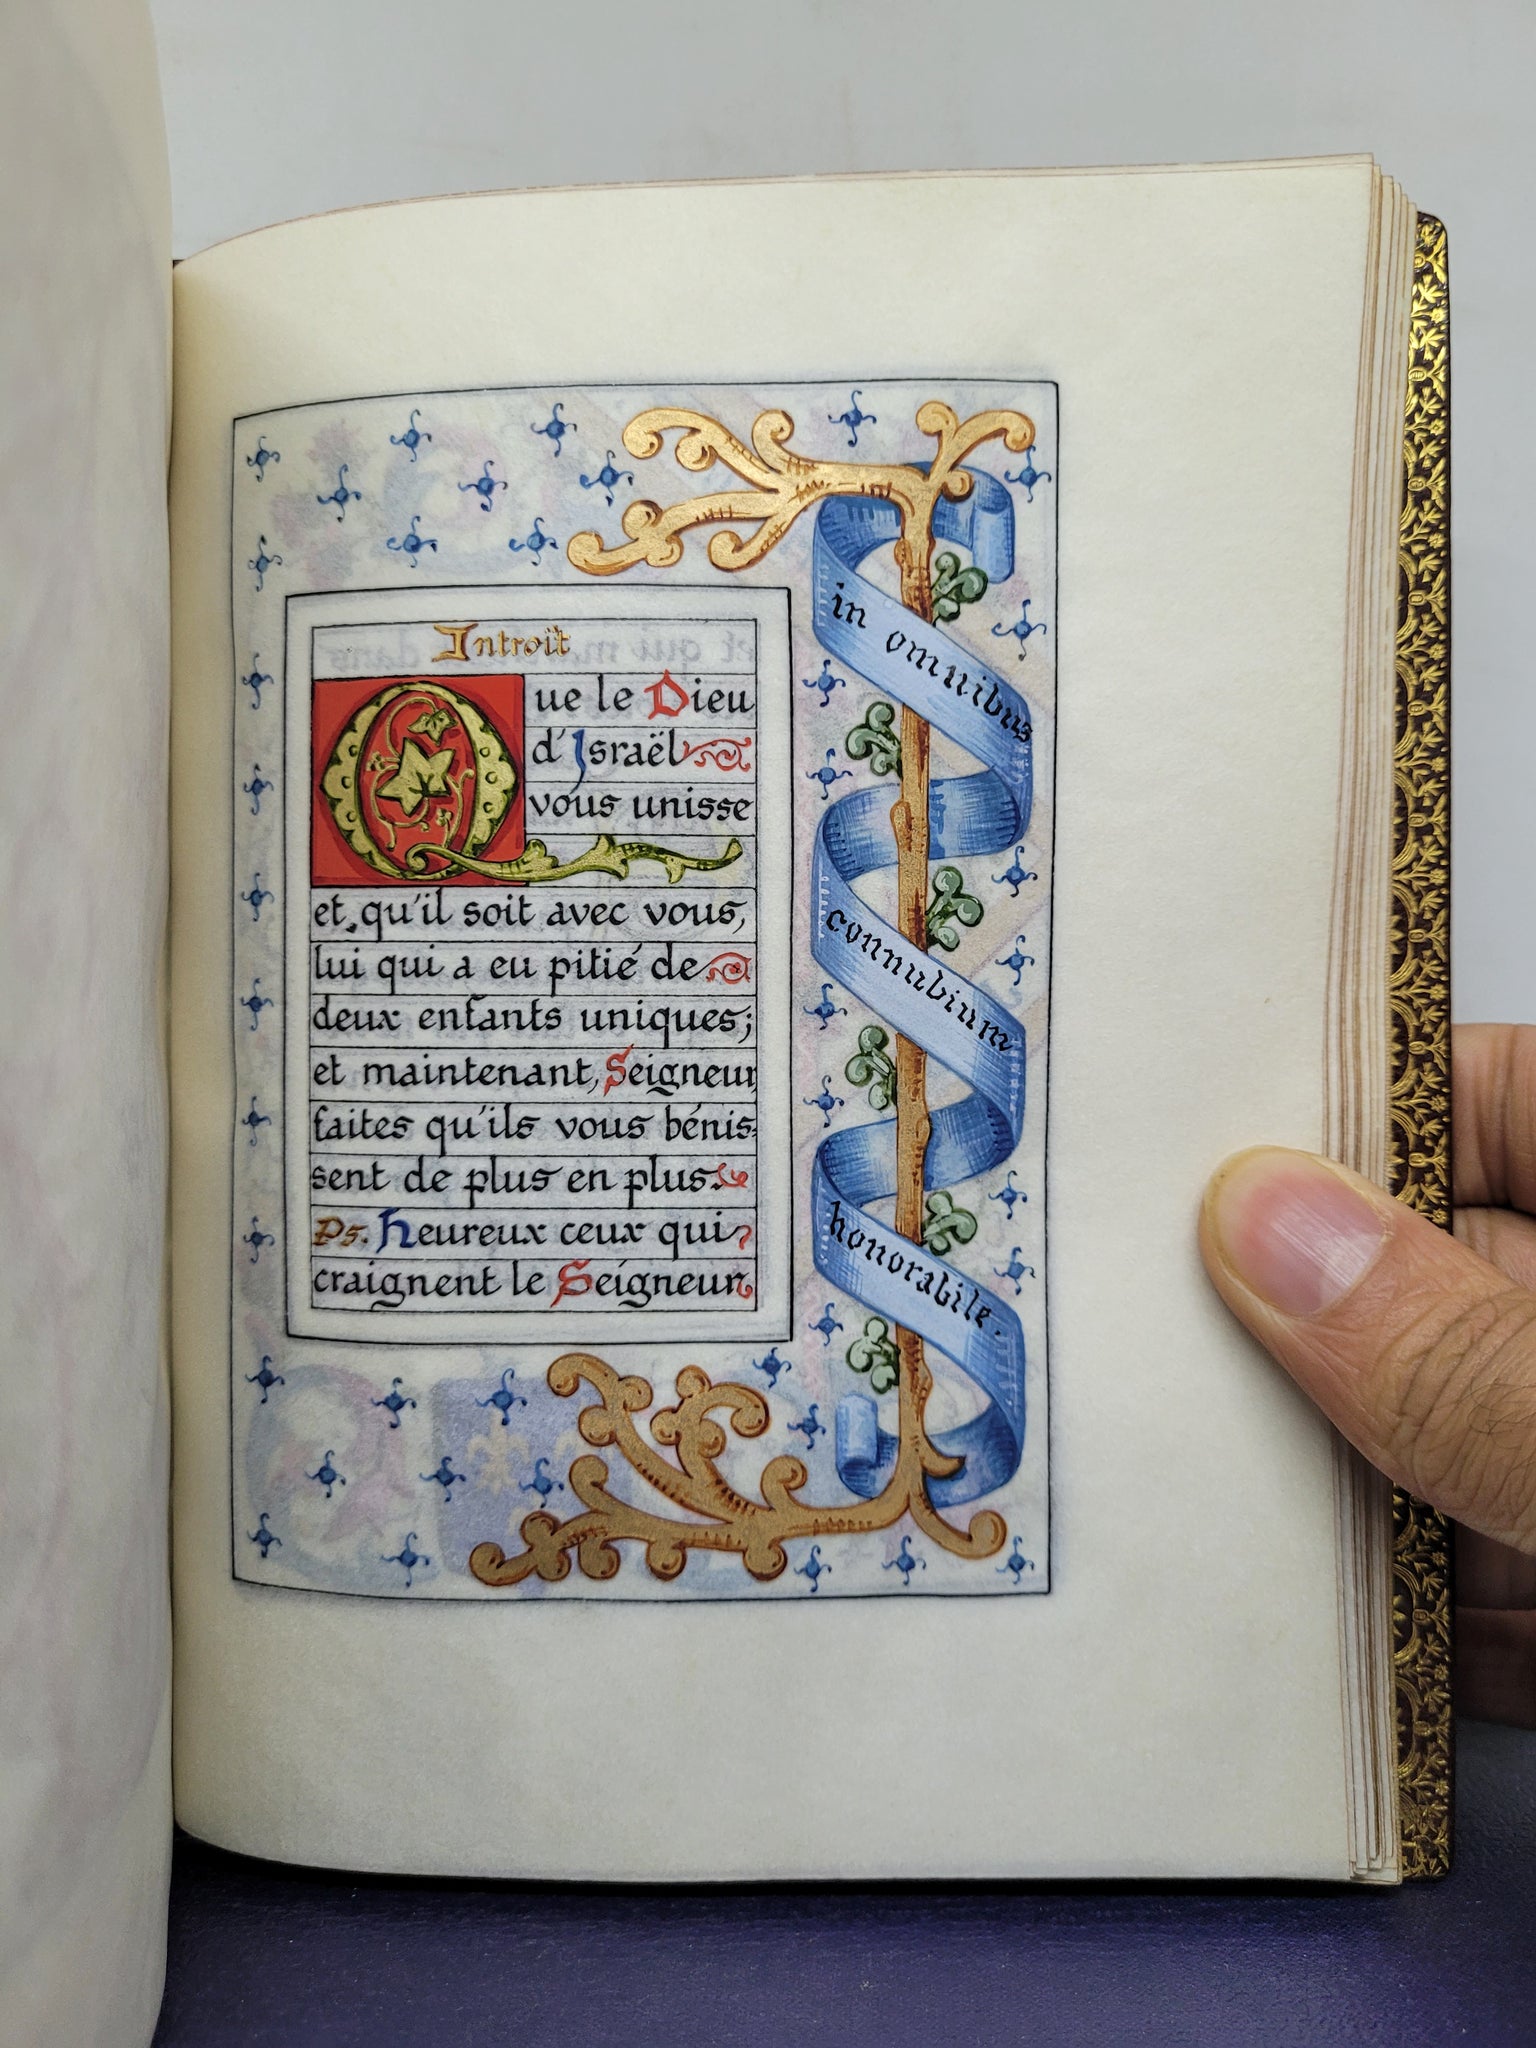 Introït
Que le Dieu
d'Israël
vous unisse
et qu'il soit avec vous,
lui qui a eu pitié de
deux enfants uniques;
et maintenant, Seigneur,
faites qu'ils vous bénis-
sent de plus en plus.
Ps. Heureux ceux qui
craignent le Seigneur
in omnibus
connubium
honorabile.